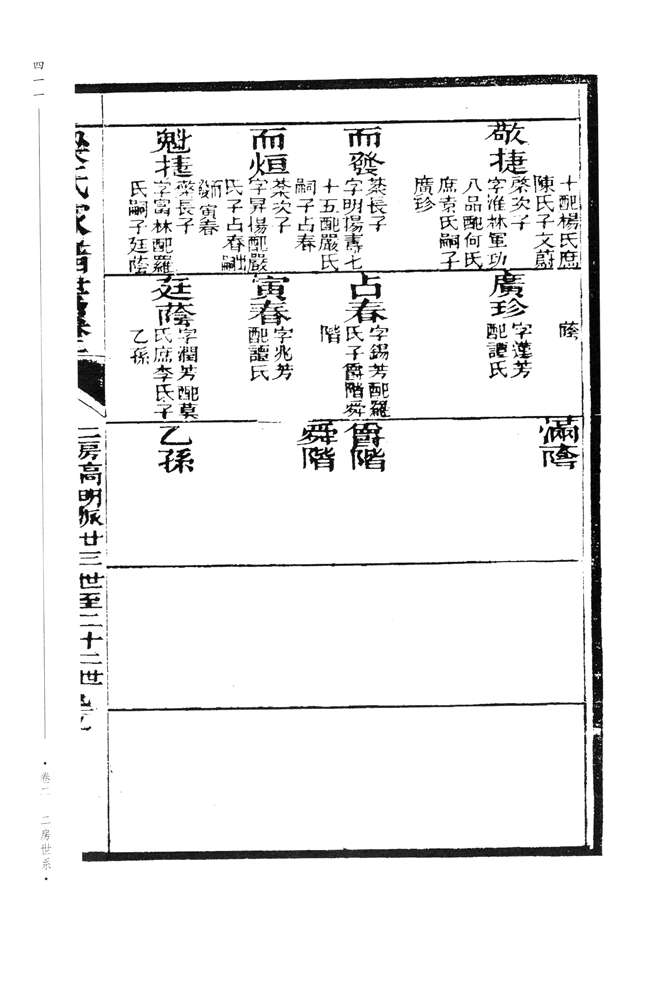 十配楊氏庶
陳氏子文蔚
敬捷
棨次子
字淮林軍功
八品配何氏
庶袁氏嗣子
廣珍
而發
棻長子
字明揚壽七
十五配嚴氏
嗣子占春
而烜
棻次子
字昇揚配嚴
氏子占春出嗣
寅春
魁捷
長子
字富林配羅
氏嗣子廷蔭
蔭
廣珍
字蓬芳
配譚氏
占春
字錫芳配羅
氏子爵階舜
階
寅春
字兆芳
配譚氏
廷蔭
字潤芳配莫
氏庶李氏子
乙孫
滿蔭
爵階
舜階
乙孫
氏家譜世
二房高明派廿三世至二十二世
四一一
卷二 二房世系